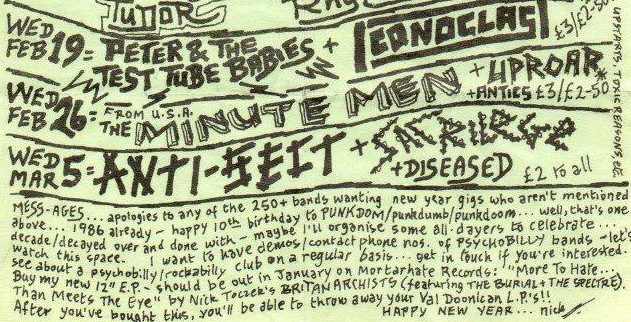 WED FEB 19= PETER & THE TEST TUBE BABIES + ICONOCLAST £3/£2-50
WED FEB 26= FROM U.S.A. THE MINUTE MEN + UPROAR + ANTICS £3/£2-50*
WED MAR 5= ANTI-SECT + SACRILEGE + DISEASED £2 to all
UPSTARTS, TOXIC REASONS, etc
MESS-AGES... apologies to any of the 250+ bands wanting new year gigs who aren't mentioned
above... 1986 already - happy 10th birthday to PUNKDOM/punkdumb/punkdoom... well, that's one
decade/decayed over and done with - maybe I'll organise some all-dayers to celebrate...
watch this space. I want to have demos/contact phone nos. of PSYCHOBILLY bands - let's
see about a psychobilly/rockabilly club on a regular basis... get in touch if you're interested.
Buy my new 12" E.P. - should be out in January on Mortarhate Records: "More To Hate...
Than Meets The Eye" by Nick Toczek's BRITANARCHISTS (featuring THE BURIAL + THE SPECTRE).
After you've bought this, you'll be able to throw away your Val Doonican L.P.'s!!
HAPPY NEW YEAR... nick